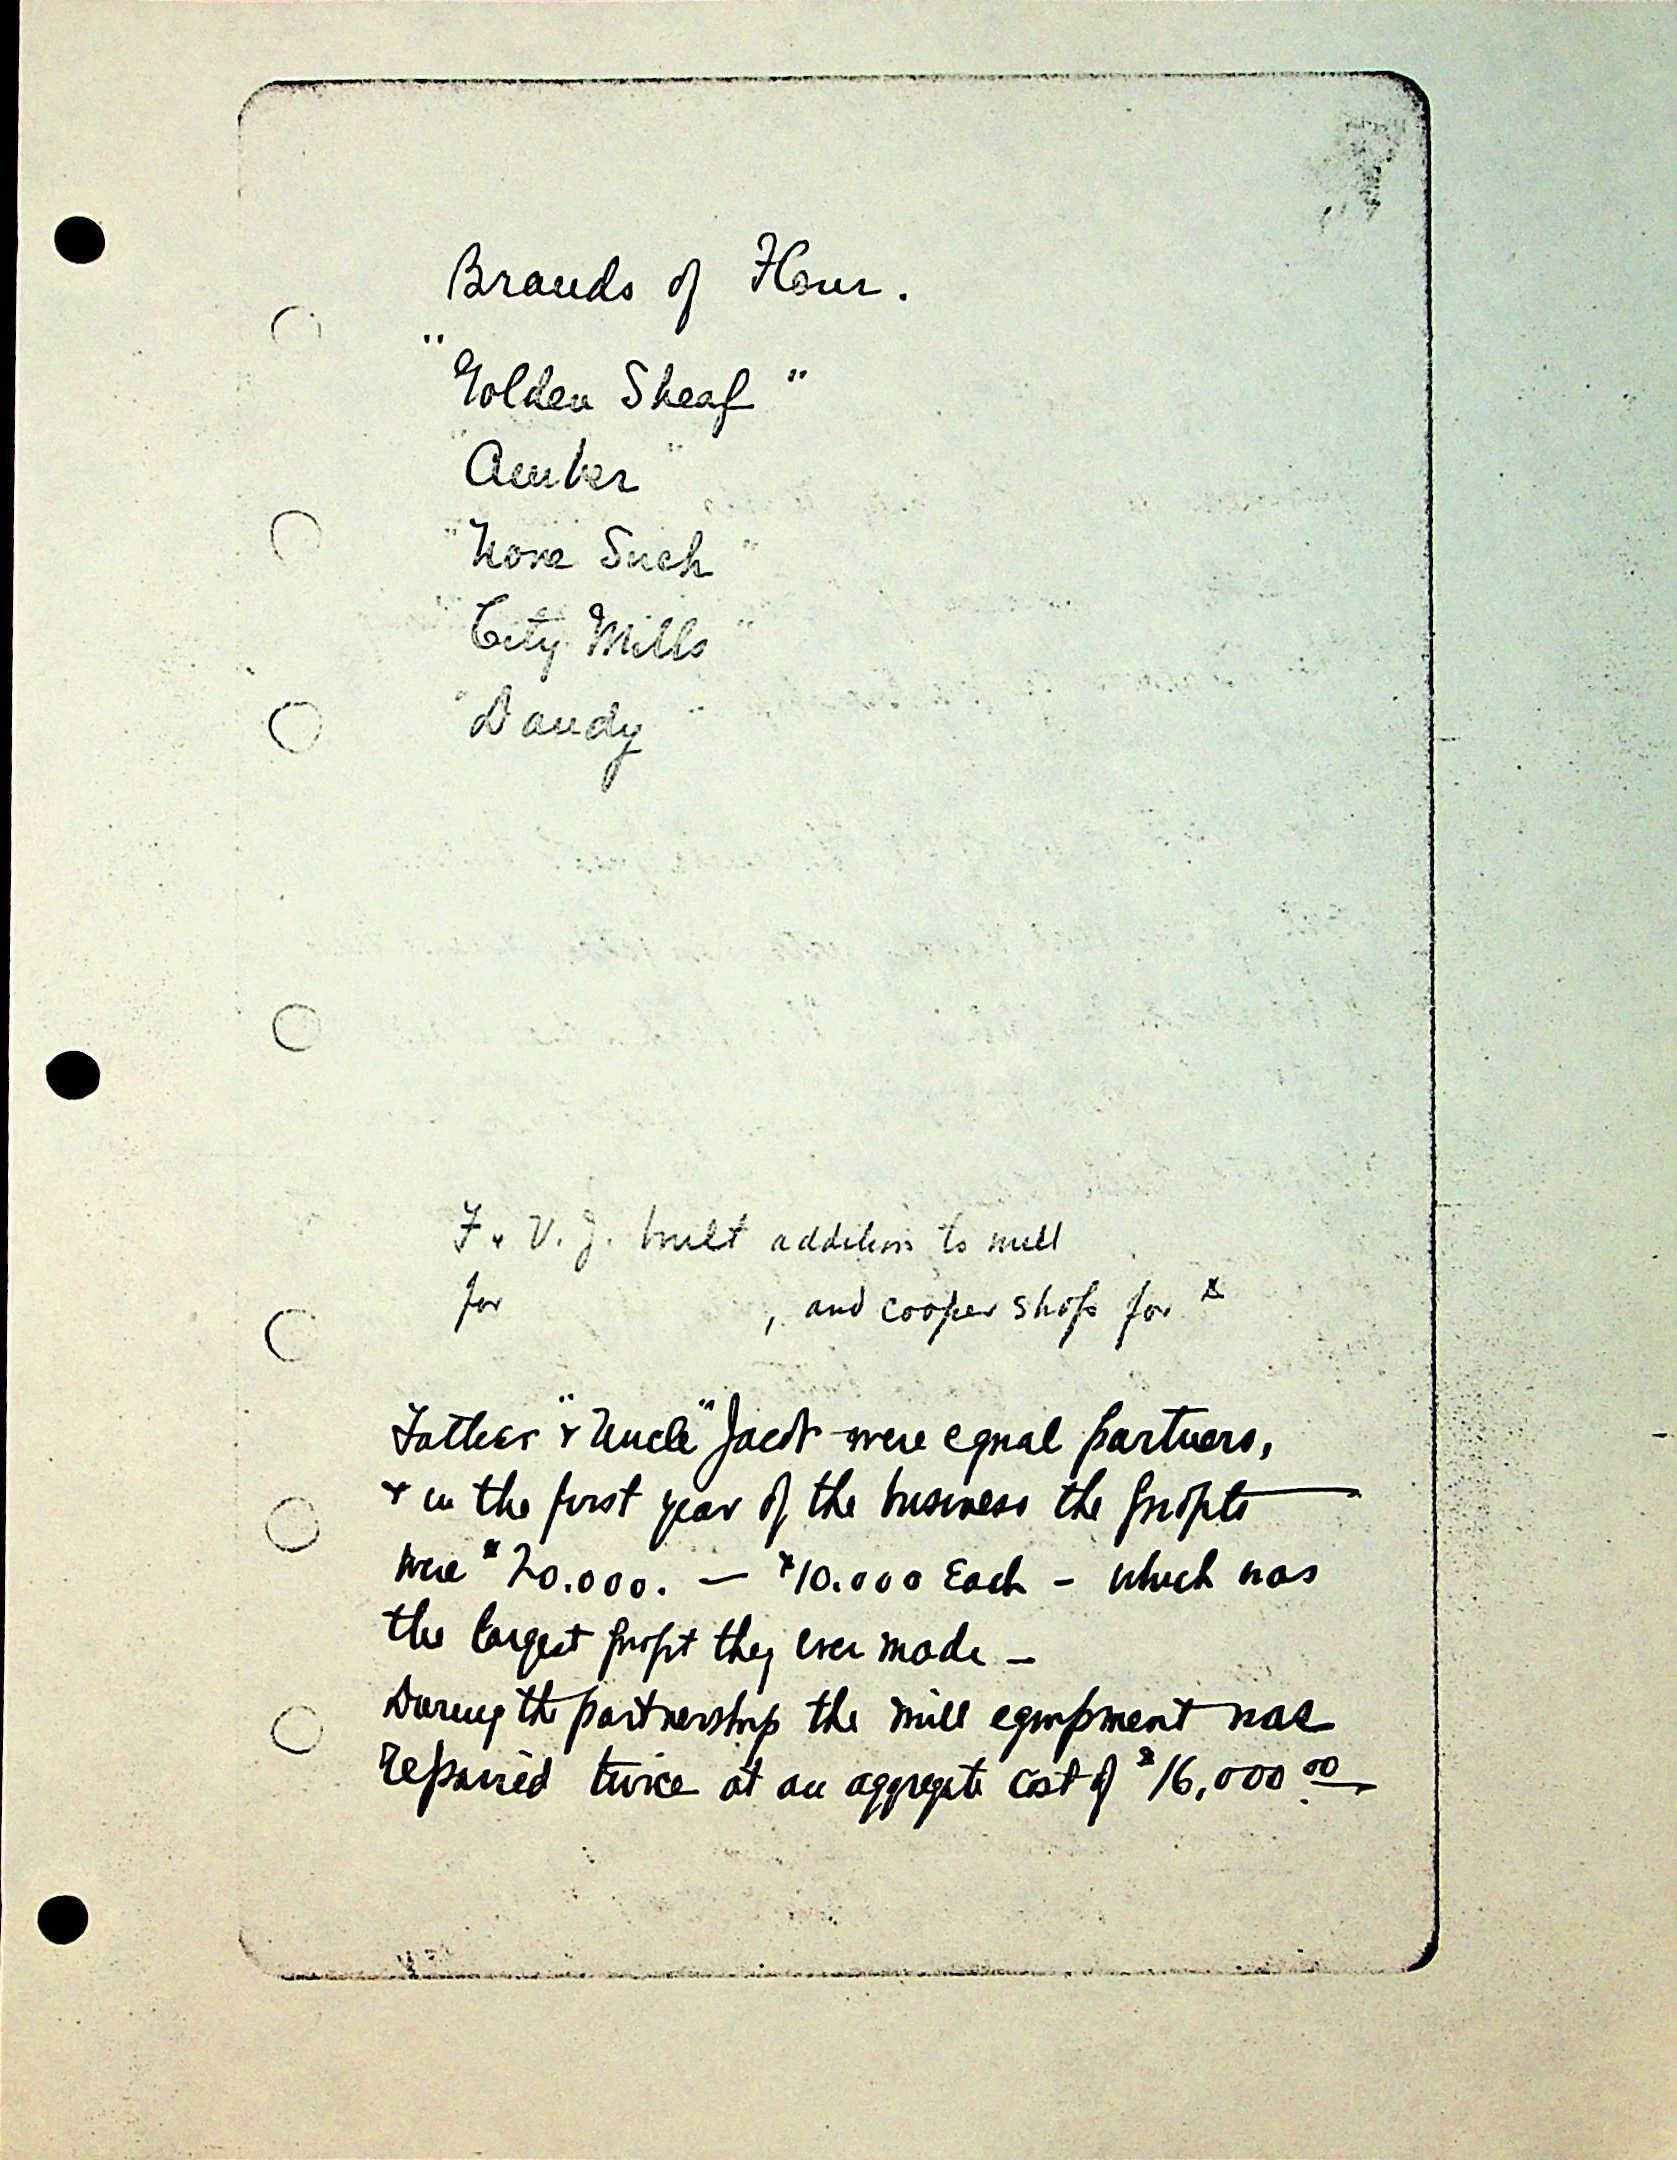 Brands of Flour.
"Golden Sheaf"
"Amber"
"None Such"
"City Mills"
"Dandy"
F. & U. J. built addition to mill
for , and cooper shop for $
Father & "Uncle" Jacob were equal partners,
& in the first year of the business the profits
were $20.000. — $10.000 Each - which was
the largest profit they ever made —
During the partnership the mill equipment was
repaired twice at an aggregate cost of $16,000.00